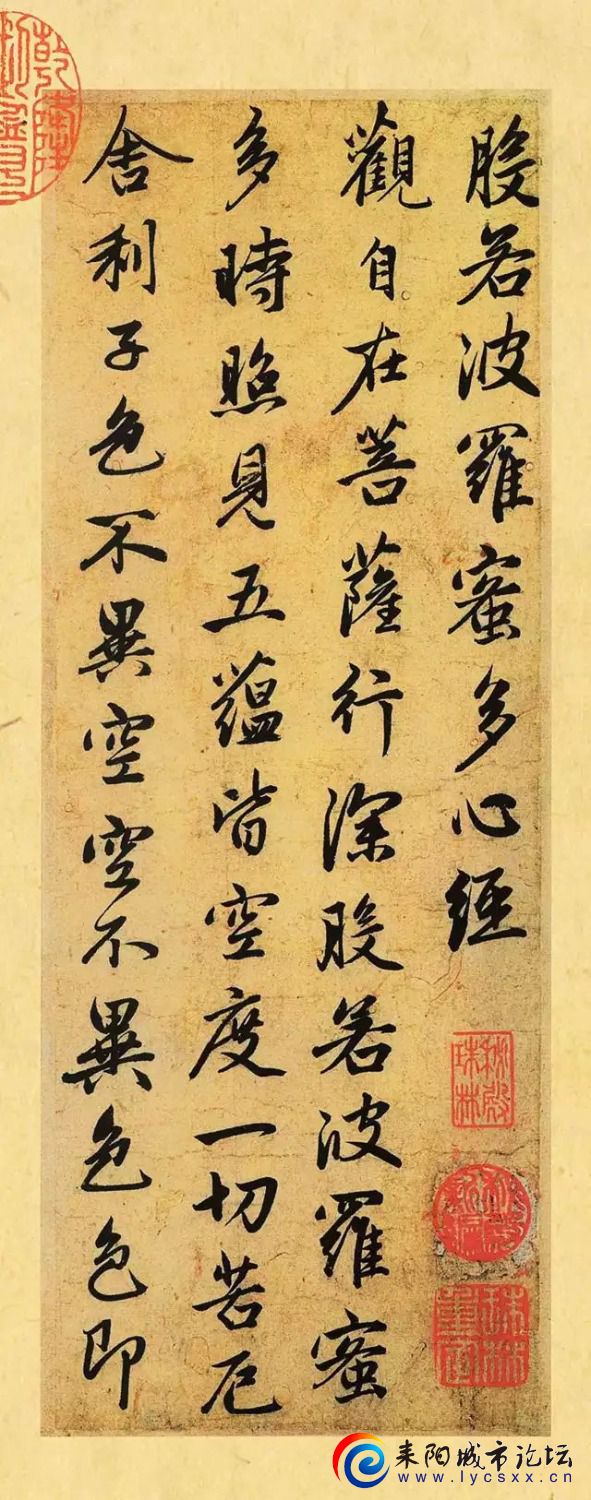 般若波羅蜜多心經
觀自在菩薩行深般若波羅蜜
多時照見五蘊皆空度一切苦厄
舍利子色不異空空不異色色即
秘殿珠林
珠林重定
耒阳城市论坛
www.lycsxx.cn